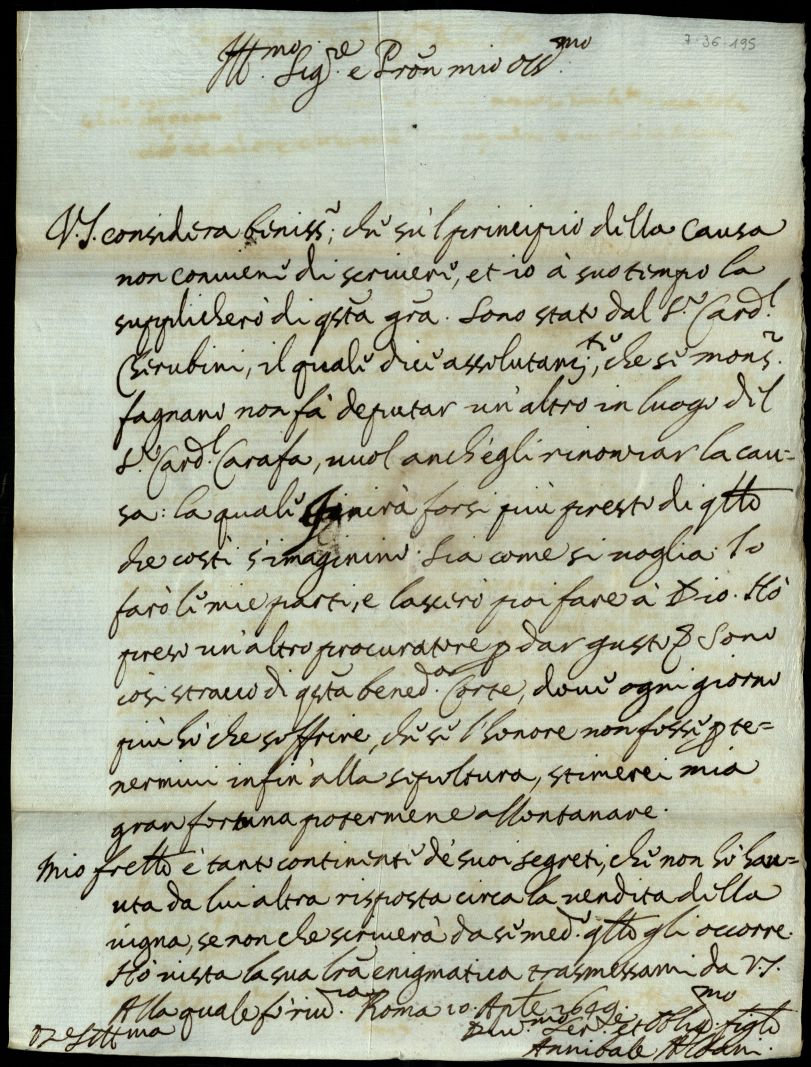 7-36-195
Ill.mo Sig.re e Pron mio oss.mo
V.S. considera beniss.o, che su'l principio della causa
non conviene di scrivere, et io à suo tempo la
supplicherò di qsta gra. Sono stato dal S.r Card.l
Cherubini, il quale dice assolutam.te, che se mons.r
fagnano non fà deputar un'altro in luogo del
S.r Card.l Carafa, vuol anch'egli rinonciar la cau=
sa: la quale finirà forse più presto di qllo
che costì s'imaginino. Sia come si voglia. Io
farò le mie parti, e lascierò poi fare à Dio. Hò
preso un'altro procuratore p dar gusto. Sono
così stracco di qsta bened.a Corte, dove ogni giorno
più hò che soffrire, che se l'honore non fosse p te=
nermivi infin' alla sepoltura, stimerei mia
gran fortuna potermene allontanare.
Mio frello è tanto continente de suoi segreti, che non hò hau=
uta da lui altra risposta circa la vendita della
vigna, se non che scriverà da se med.o qllo gli occorre.
Hò vista la sua lra enigmatica trasmessami da V.S.
Alla quale fò riu.za Roma 10. Aple 1649.
Di V.S. Ill.ma
Deu.mo Ser.re et Oblig.mo figlio
Annibale Albani.